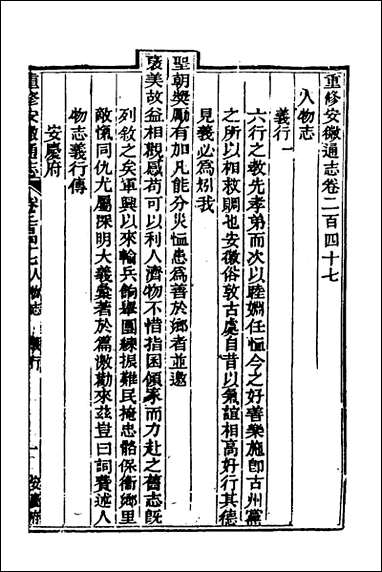 重修安徽通志卷二百四十七
人物志
義行一
六行之敎先孝弟而次以睦婣任恤今之好善樂施卽古州黨
之所以相救賙也安徽俗敦古處自昔以氣誼相高好行其德
見義必爲矧我
聖朝獎勵有加凡能分災恤患爲善於鄉者並邀
褒美故益相觀感苟可以利人濟物不惜指囷傾家而力赴之舊志旣
列敘之矣軍興以來輸兵餉舉團練振難民掩忠骼保衞鄉里
敵愾同仇尤屬深明大義彙著於篇激勸來茲豈曰詞費述人
物志義行傳
安慶府
重修安徽通志
卷二百四十七人物志
義行一
一
安慶府